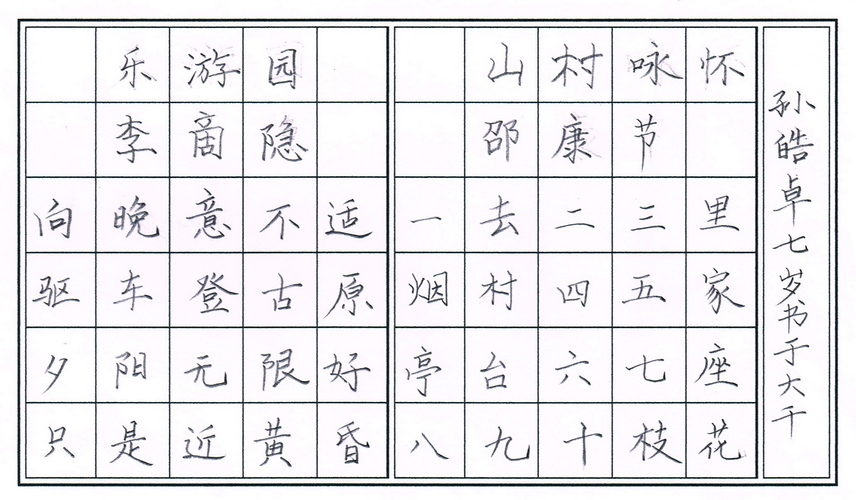 乐游园
李商隐
向晚意不适
驱车登古原
夕阳无限好
只是近黄昏
山村咏怀
邵康节
一去二三里
烟村四五家
亭台六七座
八九十枝花
孙皓卓七岁书于大千